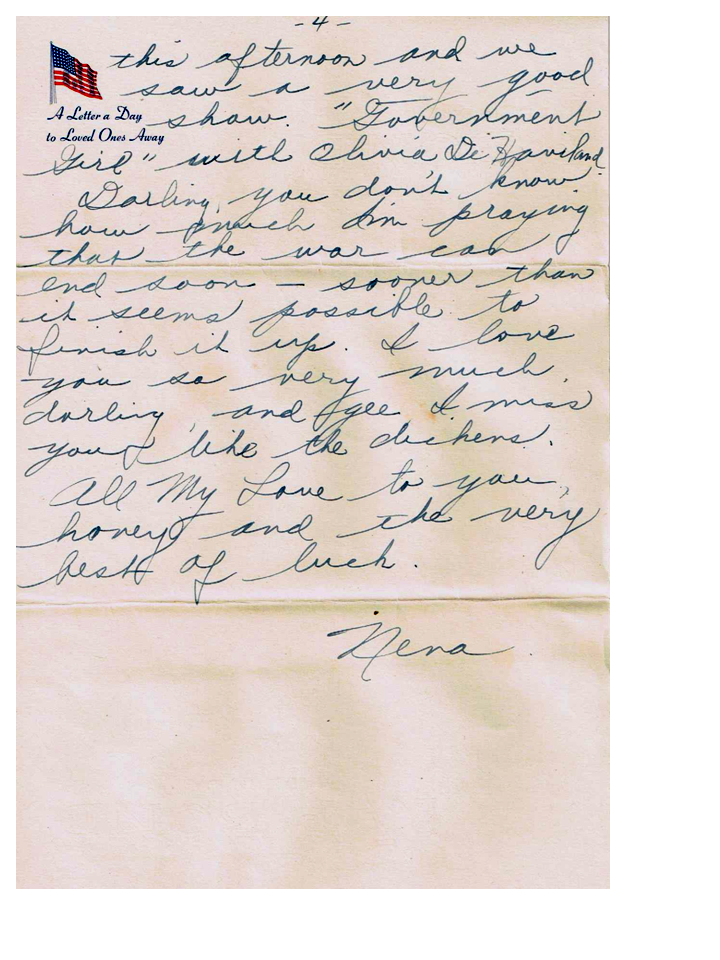 - 4 -
this afternoon and we
saw a very good
A Letter a Day
to Loved Ones Away
show. "Government
Girl" with Olivia De Haviland.
Darling, you don't know
how much I'm praying
that the war can
end soon — sooner than
it seems possible to
finish it up. I love
you so very much,
darling, and gee I miss
you like the dickens.
All My Love to you,
honey and the very
best of luck.
Nena